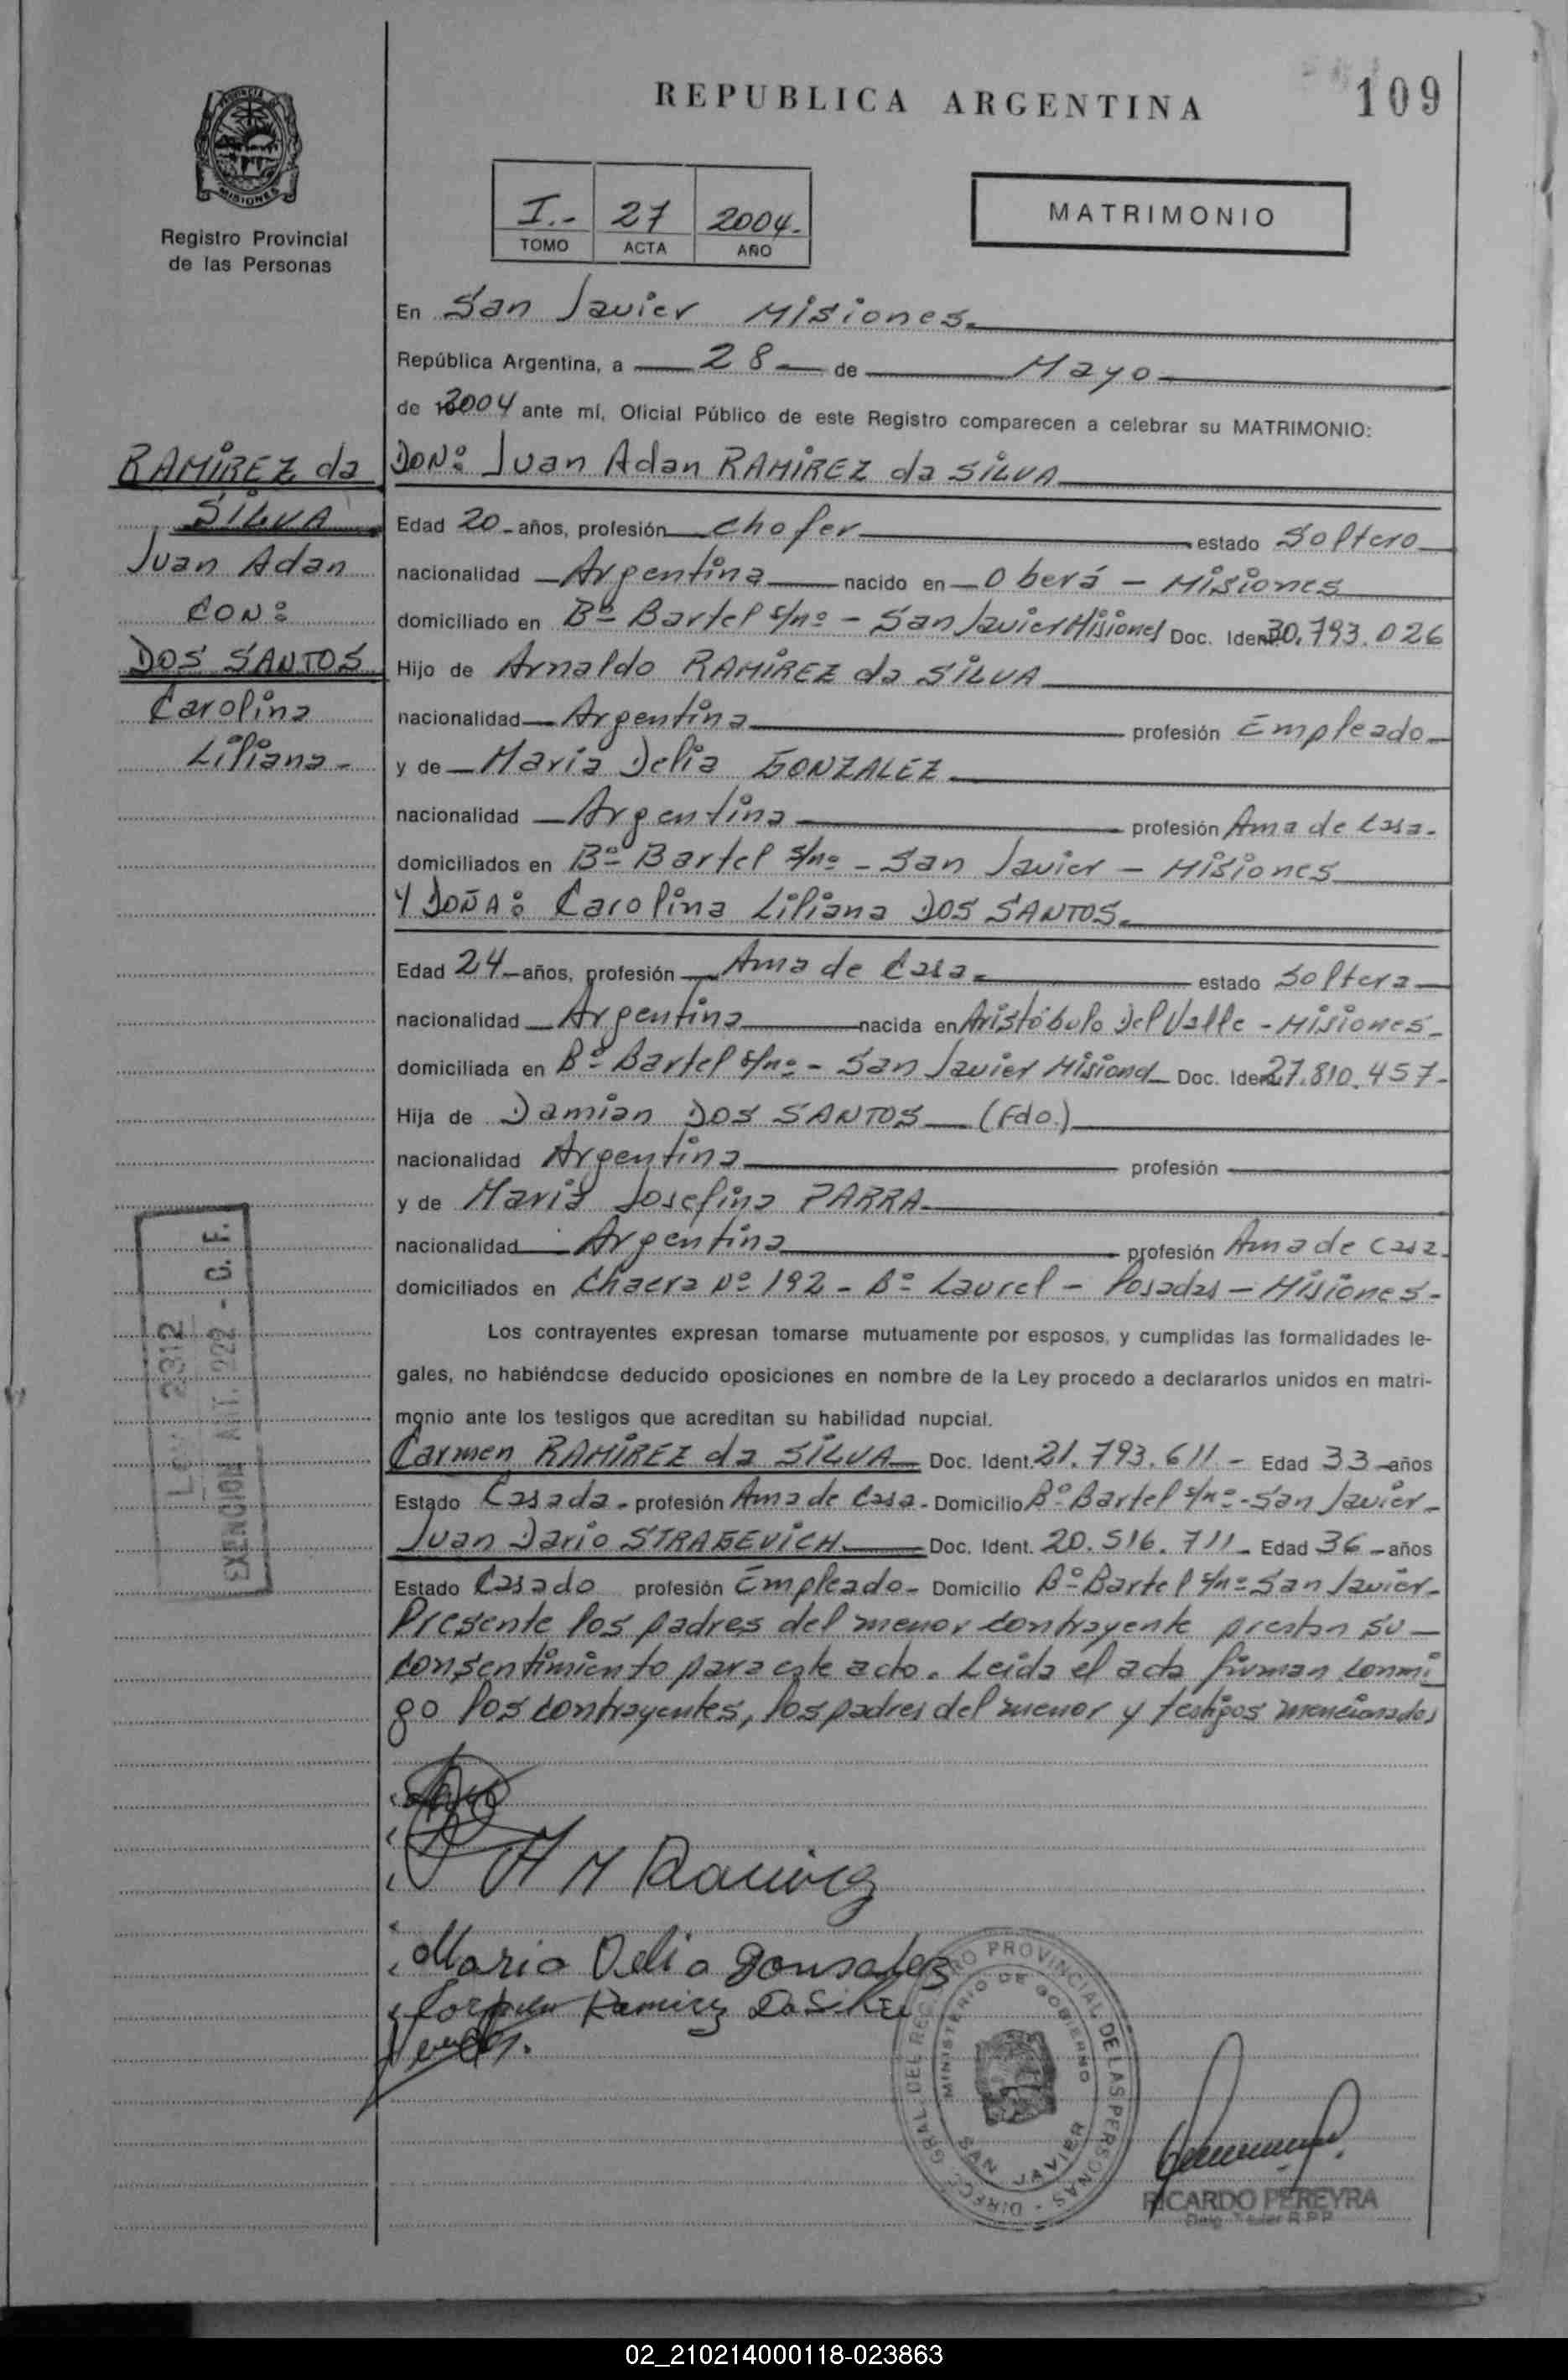 REPUBLICA ARGENTINA
109
PROVINCIA DE
MISIONES
Registro Provincial
de las Personas
I.- 27 2004.-
TOMO ACTA AÑO
MATRIMONIO
En San Javier Misiones.
República Argentina, a 28 de Mayo
de 2004 ante mí, Oficial Público de este Registro comparecen a celebrar su MATRIMONIO:
RAMIREZ da
SILVA
Juan Adan
CON:
DOS SANTOS
Carolina
Liliana -
DON: Juan Adan RAMIREZ da SILVA
Edad 20 - años, profesión chofer estado Soltero
nacionalidad Argentina nacido en Oberá - Misiones
domiciliado en Bº Bartel s/nº - San Javier Misiones Doc. Ident. 30.793.026
Hijo de Arnaldo RAMIREZ da SILVA
nacionalidad Argentina profesión Empleado
y de Maria Delia GONZALEZ
nacionalidad Argentina profesión Ama de casa.
domiciliados en Bº Bartel s/nº - San Javier - Misiones
Y DOÑA: Carolina Liliana DOS SANTOS.
Edad 24 - años, profesión Ama de Casa. estado Soltera
nacionalidad Argentina nacida en Aristóbulo Del Valle - Misiones -
domiciliada en Bº Bartel s/nº - San Javier Misiones Doc. Ident. 27.810.457-
Hija de Damian DOS SANTOS (Fdo.)
nacionalidad Argentina profesión
y de Maria Josefina PARRA
nacionalidad Argentina profesión Ama de casa.
domiciliados en Chacra Nº 192 - Bº Laurel - Posadas - Misiones -
Los contrayentes expresan tomarse mutuamente por esposos, y cumplidas las formalidades le-
gales, no habiéndose deducido oposiciones en nombre de la Ley procedo a declararlos unidos en matri-
monio ante los testigos que acreditan su habilidad nupcial.
Carmen RAMIREZ da SILVA Doc. Ident. 21.793.611 - Edad 33 años
Estado Casada - profesión Ama de Casa - Domicilio Bº Bartel s/nº - San Javier -
Juan Dario STRAGEVICH Doc. Ident. 20.516.711 - Edad 36 - años
Estado Casado profesión Empleado - Domicilio Bº Bartel s/nº San Javier -
Presente los padres del menor contrayente prestan su
consentimiento para este acto. Leida el acta firman conmi
go los contrayentes, los padres del menor y testigos mencionados
LEY 2312
EXENCION ART. 222 - C. F.
A M Ramirez
Maria Delia Gonsalez
Ramirez Da Silva
DIRECC. GRAL. DEL REGISTRO PROVINCIAL DE LAS PERSONAS
MINISTERIO DE GOBIERNO
SAN JAVIER
RICARDO PEREYRA
02_210214000118-023863